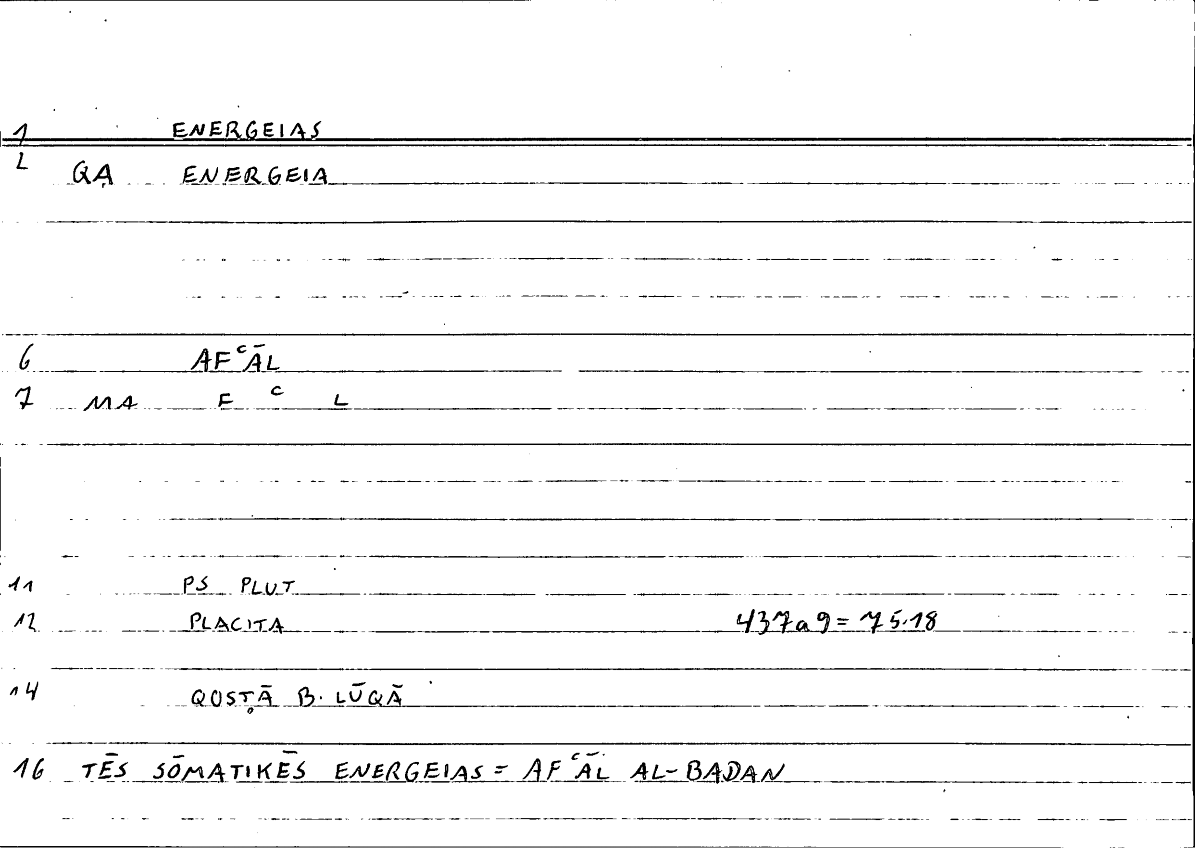 1 ENERGEIAS
2 QẠ ENERGEIA
6 AFʿĀL
7 MA F ʿ L
11 PS PLUT
12 PLACITA 437a9 = 75.18
14 QOSṬĀ B. LŪQĀ
16 TĒS SŌMATIKĒS ENERGEIAS = AFʿĀL AL-BADAN